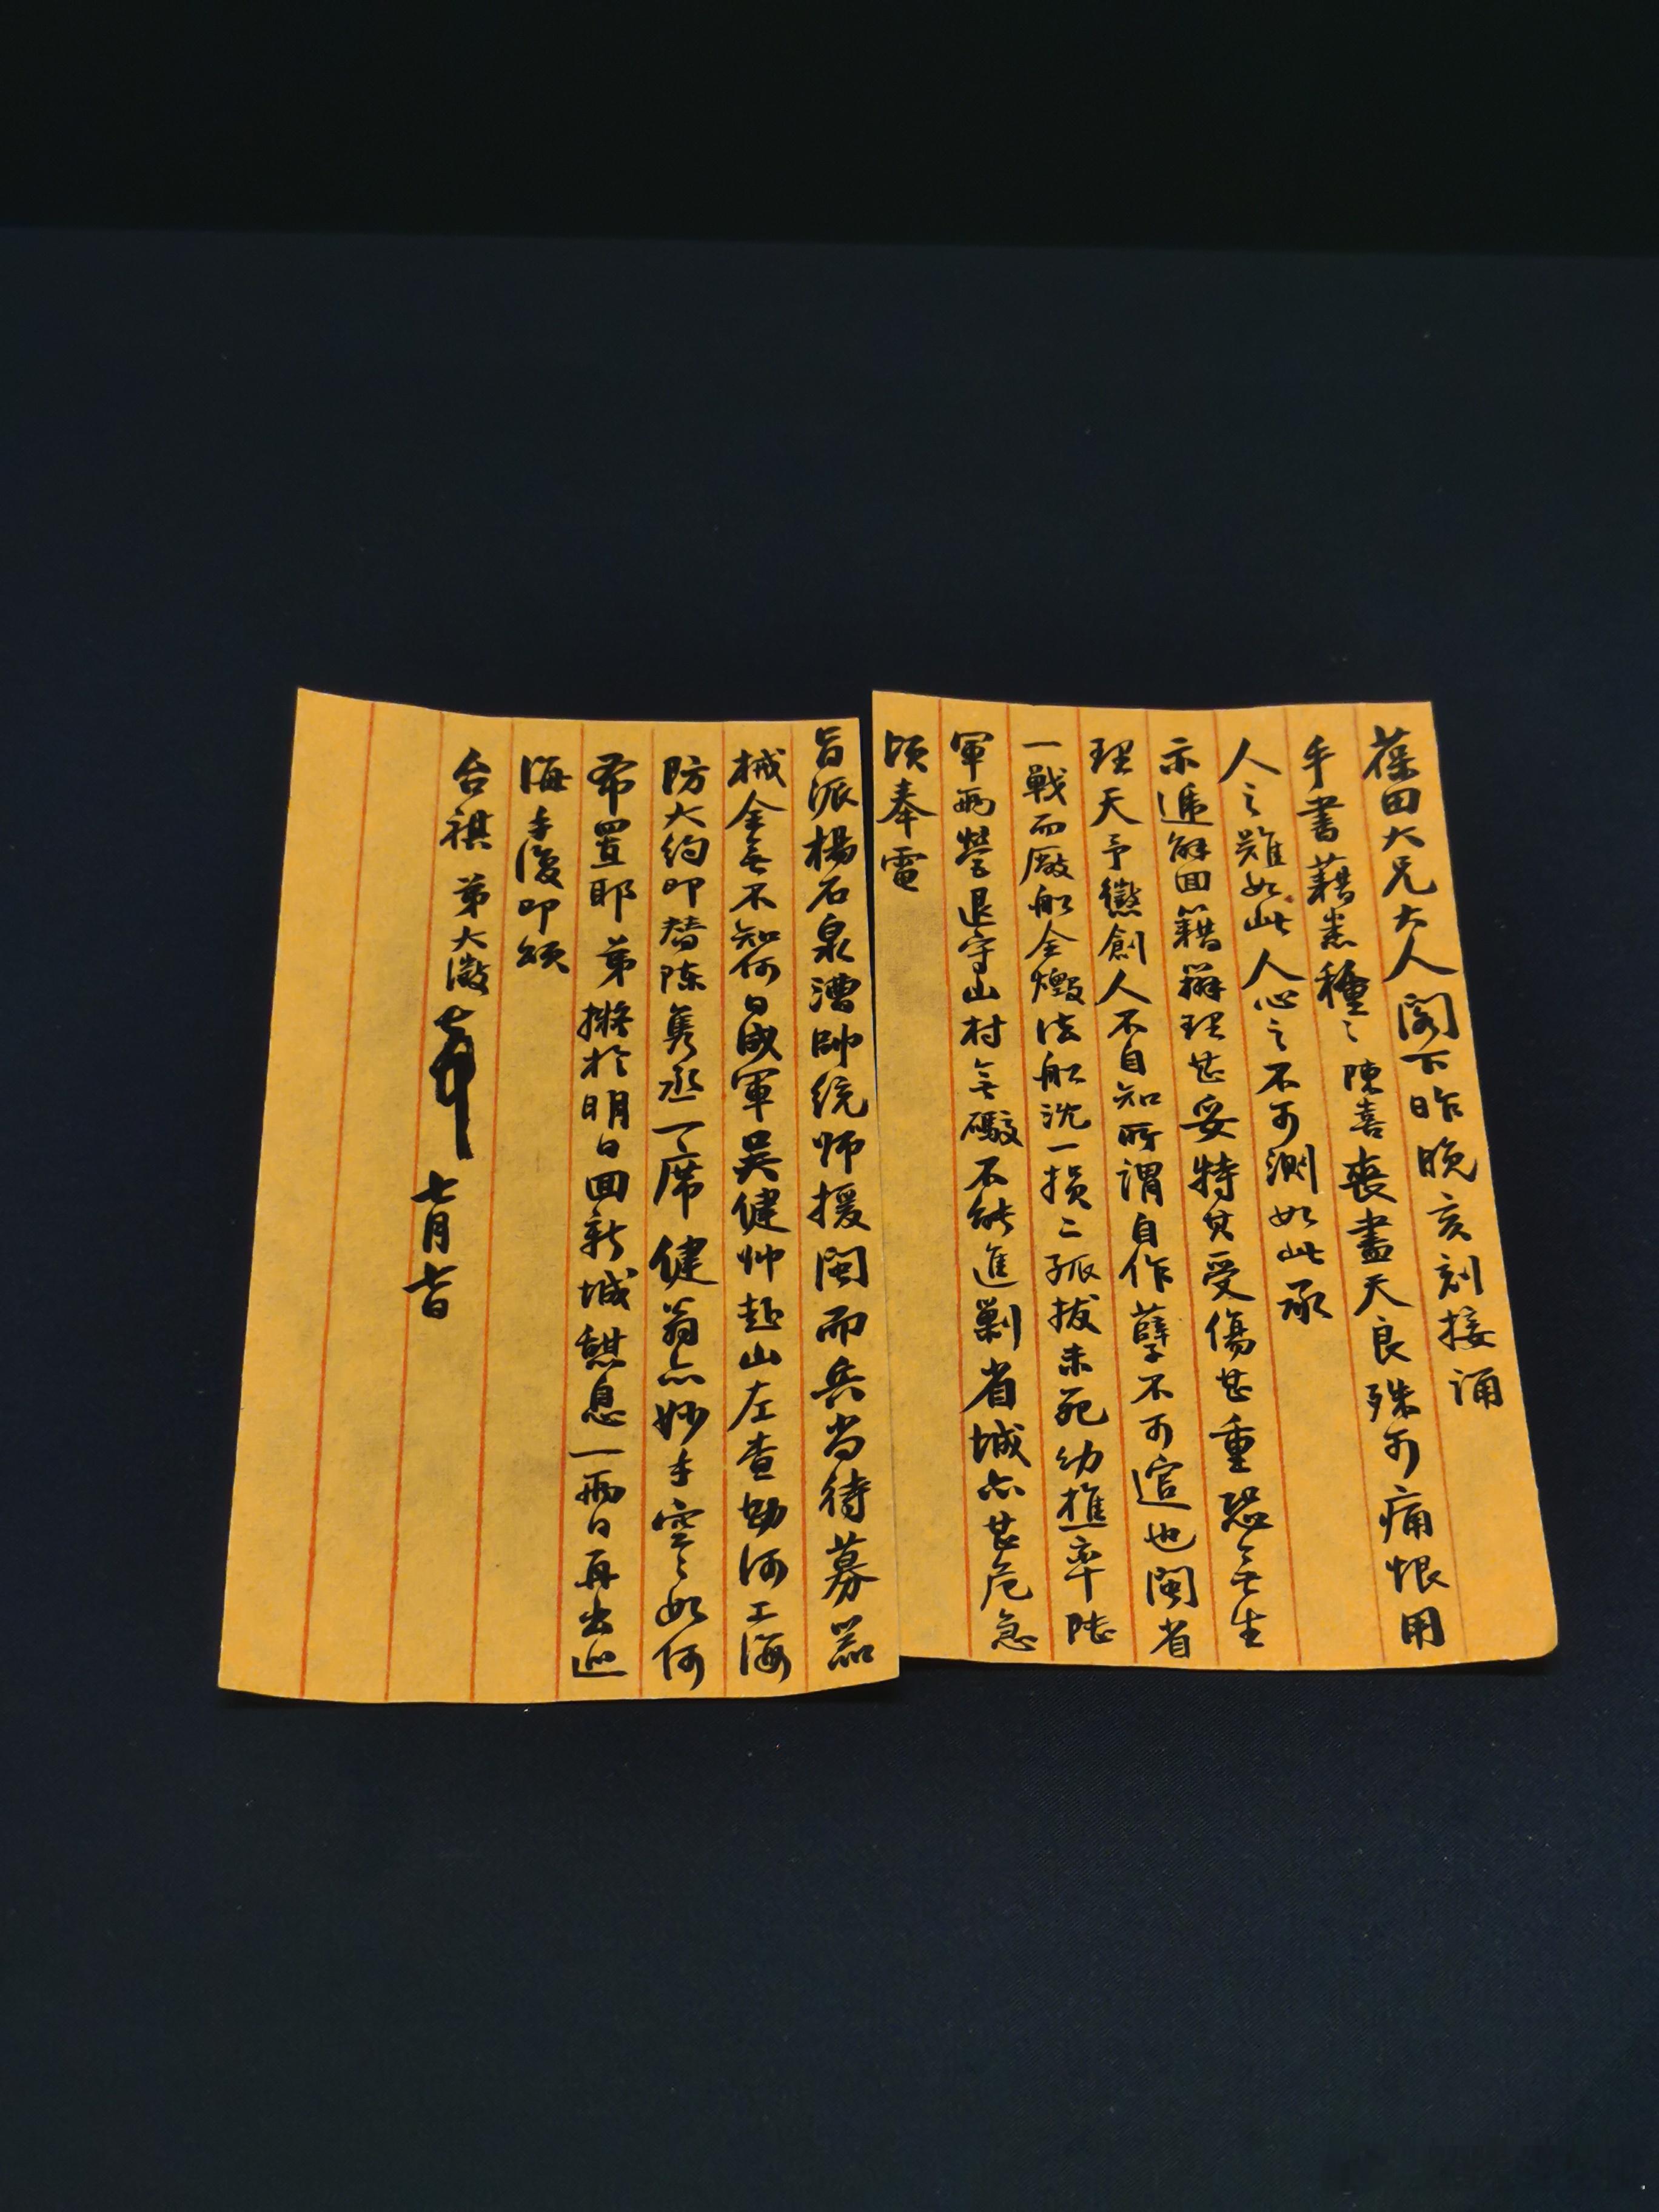 葆田大兄大人阁下昨晚亥刻接诵
手書藉悉種〻陳喜喪盡天良殊可痛恨用
人之難如此人心之不可測如此承
示遞解回籍辦理甚妥特其受傷甚重恐無生
理天予懲創人不自知所謂自作孽不可逭也閩省
一戰而廠船全燬法船沈一損二孤拔未死幼樵率陸
軍兩營退守山村無礮不能進剿省城亦甚危急
頃奉電
旨派楊石泉漕帥统师援閩而兵尚待募器
械全無不知何日成軍吳健帅赴山左查勘河工海
防大約即替陈隽丞一席健翁亦妙手空〻如何
布置耶弟擬於明日回新城憇息一兩日再出巡
海手復即頌
台祺弟大澂
七月